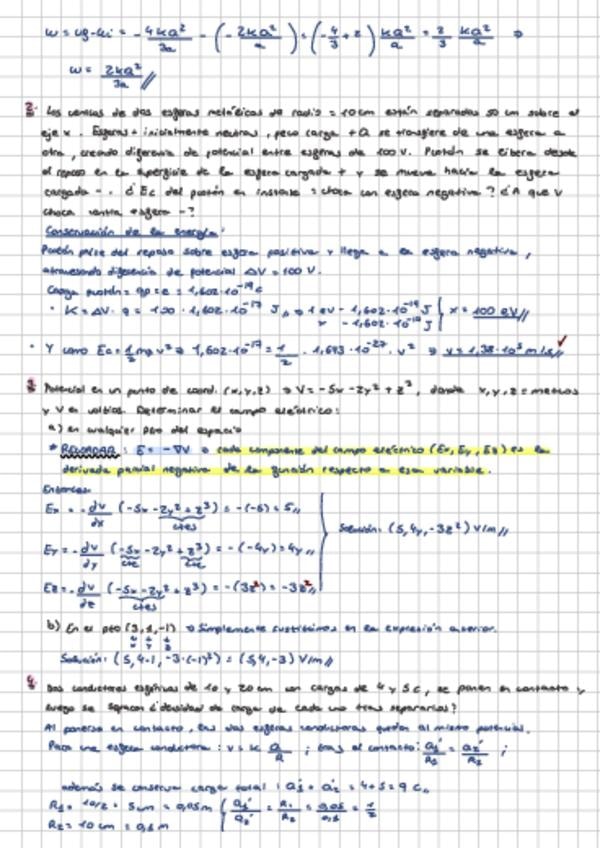 W = Uf - Ui = -4kQ²/3a - (-2kQ²/a) = (-4/3 + 2) kQ²/a = 2/3 kQ²/a ⇒
W = 2kQ²/3a //
2. Los centros de dos esferas metálicas de radio = 10 cm están separados 50 cm sobre el
eje x. Esferas inicialmente neutras, pero carga +Q se transfiere de una esfera a
otra, creando diferencia de potencial entre esferas de 100 V. Protón se libera desde
el reposo en la superficie de la esfera cargada + y se mueve hacia la esfera
cargada -. ¿Ec del protón en instante choca con esfera negativa? ¿A que v
choca contra esfera -?
Conservación de la energía:
Protón parte del reposo sobre esfera positiva y llega a la esfera negativa,
atravesando diferencia de potencial ΔV = 100 V.
Carga protón = qp = e = 1,602·10⁻¹⁹ C
· K = ΔV · q = 100 · 1,602·10⁻¹⁷ J ⇒ 1 eV - 1,602·10⁻¹⁹ J
x - 1,602·10⁻¹⁷ J } x = 100 eV //
· Y como Ec = 1/2 mp v² ⇒ 1,602·10⁻¹⁷ = 1/2 · 1,673·10⁻²⁷ · v² ⇒ v = 1,38·10⁵ m/s //
3. Potencial en un punto de coord. (x,y,z) ⇒ V = -5x - 2y² + z³, donde x,y,z = metros
y V en voltios. Determinar el campo eléctrico:
a) en cualquier pto del espacio
* RECORDAR: E = -∇V cada componente del campo eléctrico (Ex, Ey, Ez) es la
derivada parcial negativa de la función respecto a esa variable.
Entonces:
Ex = -dV/dx (-5x - 2y² + z³) = -(-5) = 5 //
ctes
Ey = -dV/dy (-5x - 2y² + z³) = -(-4y) = 4y //
cte cte
Solución: (5, 4y, -3z²) V/m //
Ez = -dV/dz (-5x - 2y² + z³) = -(3z²) = -3z² //
ctes
b) En el pto (3,1,-1) ⇒ Simplemente sustituimos en la expresión anterior.
x y z
Solución: (5, 4·1, -3·(-1)²) = (5,4,-3) V/m //
4. Dos conductores esféricos de 10 y 20 cm con cargas de 4 y 5 C, se ponen en contacto y
luego se separan ¿densidad de carga de cada uno tras separarlos?
Al ponerse en contacto, las dos esferas conductoras quedan al mismo potencial.
Para una esfera conductora: V = k Q/R ; tras el contacto: Q1'/R1 = Q2'/R2 ;
además se conserva carga total: Q1' + Q2' = 4+5 = 9 C //
R1 = 10/2 = 5 cm = 0,05 m { Q1'/Q2' = R1/R2 = 0,05/0,1 = 1/2
R2 = 10 cm = 0,1 m